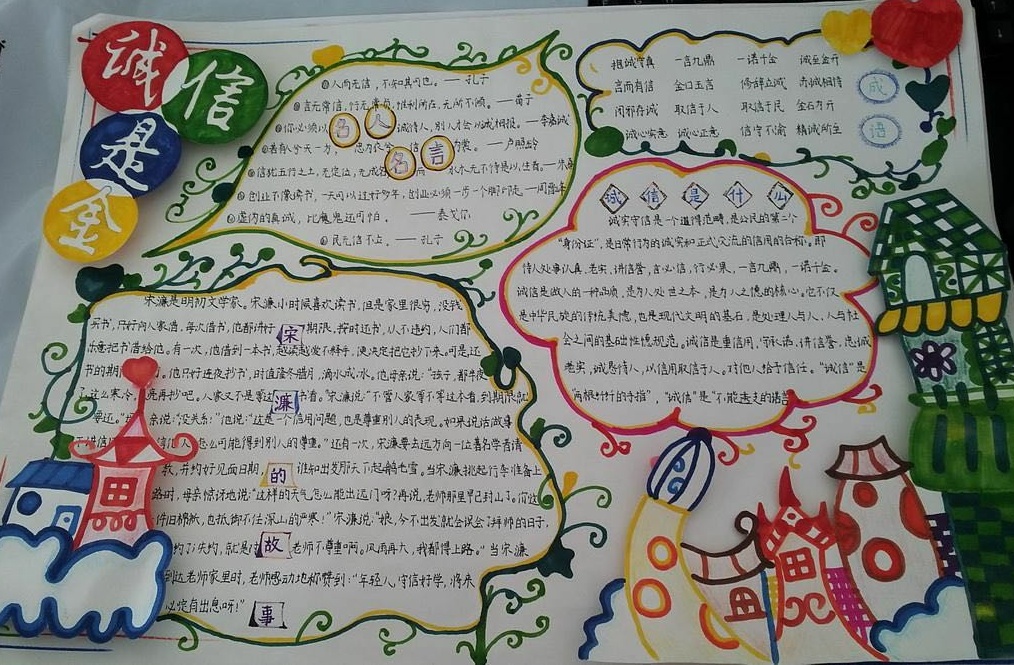 诚
信
是
金
①人而无信，不知其可也。——孔子
言无常信，行无常贞，惟利所在，无所不倾。——荀子
你必须以诚待人，别人才会以诚相报。——李嘉诚
名人
名言
信犹五行之土，无定位，无成名
创业不像读书，一天可以过好多年，创业必须一步一个脚印走
虚伪的真诚，比魔鬼还可怕。——泰戈尔
民无信不立。——孔子
成
语
一言九鼎 一诺千金 诚至金开
言而有信 金口玉言 修辞立诚 赤诚相待
闲邪存诚 取信于人 取信于民 金石为开
诚心实意 诚心正意 信守不渝 精诚所至
诚信是什么
诚实守信是一个道德范畴，是公民的第一个
“身份证”，是日常行为的诚实和正式交流的信用的合称。即
待人处事认真、老实、讲信誉，言必信，行必果，一言九鼎，一诺千金。
诚信是做人的一种品质，是为人处世之本，是为人之德的核心。它不仅
是中华民族的传统美德，也是现代文明的基石，是处理人与人、人与社
会之间的基础性德规范。诚信是重信用、守承诺、讲信誉、忠诚
老实，诚恳待人，以信用取信于人。对他人给予信任。“诚信”是
，“诚信”是“不能透支的诺言
宋濂的故事
宋濂是明初文学家。宋濂小时候喜欢读书，但是家里很穷，没钱
买书，只好向人家借，每次借书，他都讲好期限，按时还书，从不违约，人们都
乐意把书借给他。有一次，他借到一本书，越读越爱不释手，便决定把它抄下来。可是还
书的期。他只好连夜抄书，时值隆冬腊月，滴水成冰。他母亲说：“孩子，都半夜
了这么寒冷，再抄吧。人家又不是等这书看。”宋濂说：“不管人家等不等这本看，到期限就
要还。”他说：“这是一个信用问题，也是尊重别人的表现。如果说话做事
怎么可能得到别人的尊重。”还有一次，宋濂要去远方向一位著名学者请
教，并约好见面日期，谁知出发那天下起鹅毛雪。当宋濂挑起行李准备上
路时，母亲惊讶地说：“这样的天气怎么能出远门呀？再说，老师那里早已封山了。你这
件旧棉袄，也抵御不住深山的严寒！”宋濂说：“娘，今不出发就会误会了拜师的日子，
约了失约，就是老师不尊重啊。风雨再大，我都得上路。”当宋濂
到达老师家里时，老师感动地称赞到：“年轻人，守信好学，将来
必定有出息呀！”